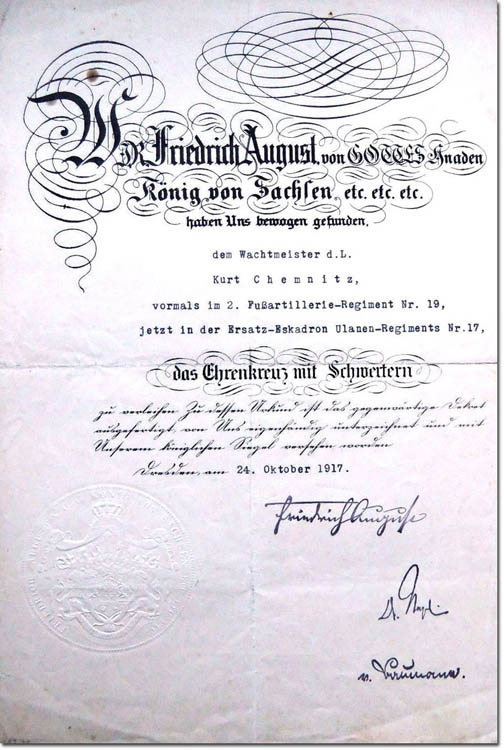 WIR Friedrich August, von GOTTES Gnaden
König von Sachsen, etc. etc. etc.
haben Uns bewogen gefunden,
dem Wachtmeister d.L.
Kurt Chemnitz,
vormals im 2. Fußartillerie-Regiment Nr. 19,
jetzt in der Ersatz-Eskadron Ulanen-Regiments Nr.17,
das Ehrenkreuz mit Schwertern
zu verleihen. Zu dessen Urkund ist das gegenwärtige Dekret
ausgefertigt, von Uns eigenhändig unterzeichnet und mit
Unserem königlichen Siegel versehen worden
Dresden, am 24. Oktober 1917.
Friedrich August